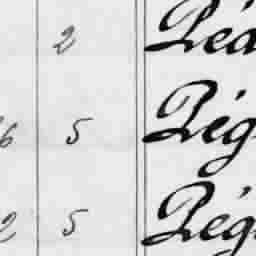 2 Réd
6 5 Rég
2 5 Rég